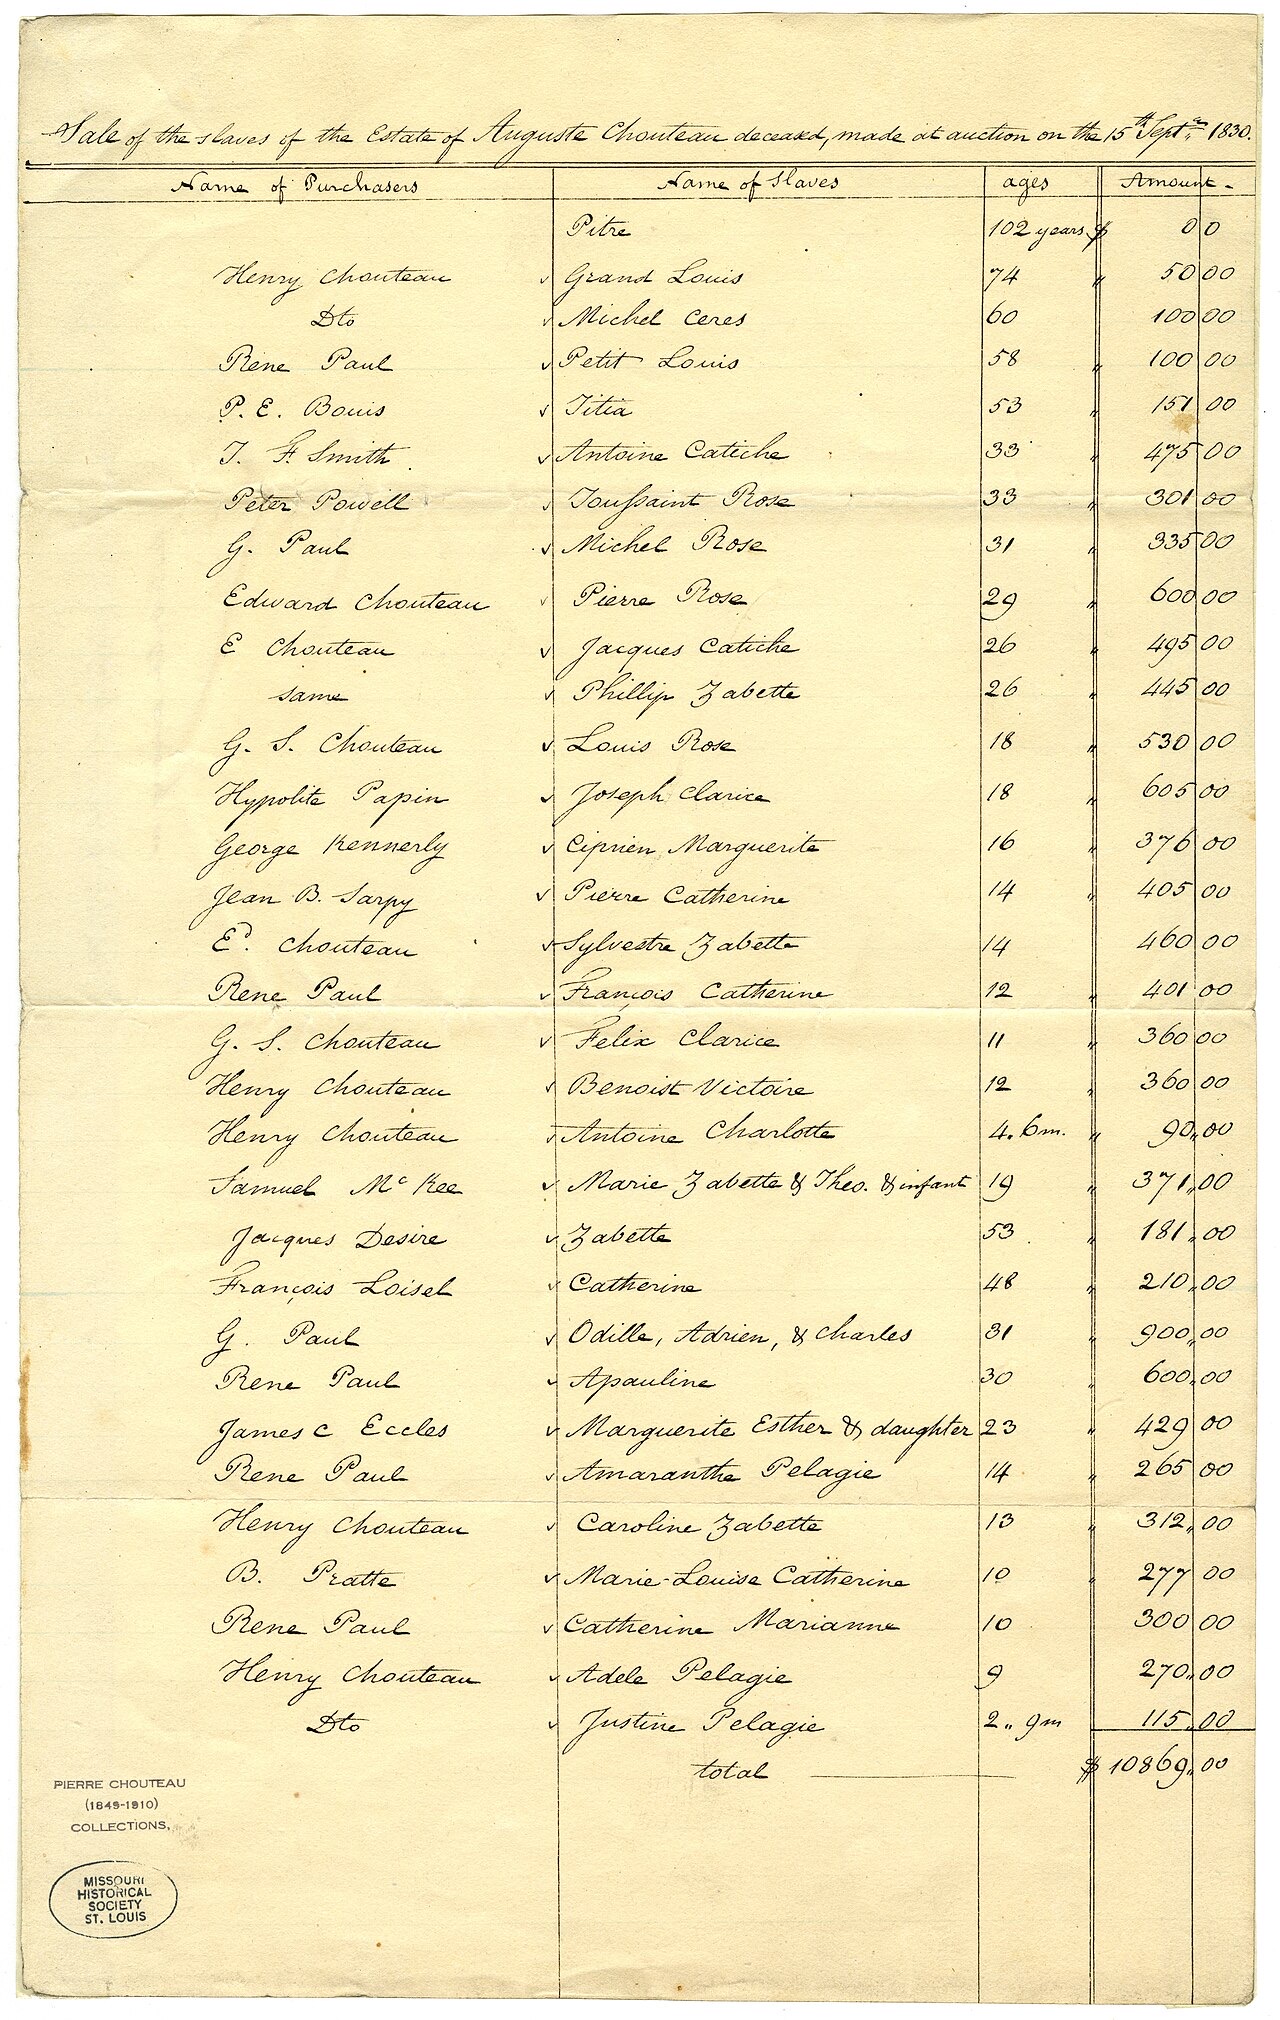 Sale of the slaves of the Estate of Auguste Chouteau deceased, made at auction on the 15th Septr. 1830.
Name of Purchasers Name of Slaves ages Amount
Pitre 102 years $ 00
Henry Chouteau v Grand Louis 74 " 50 00
Dto v Michel Ceres 60 100 00
Rene Paul v Petit Louis 58 " 100 00
P. E. Bouis v Titia 53 " 151 00
J. F. Smith v Antoine Catiche 33 " 475 00
Peter Powell v Toussaint Rose 33 " 301 00
G. Paul v Michel Rose 31 " 335 00
Edward Chouteau v Pierre Rose 29 " 600 00
E Chouteau v Jacques Catiche 26 " 495 00
same v Phillip Zabette 26 " 445 00
G. S. Chouteau v Louis Rose 18 " 530 00
Hypolite Papin v Joseph Clarice 18 " 605 00
George Kennerly v Ciprien Marguerite 16 " 376 00
Jean B. Sarpy v Pierre Catherine 14 " 405 00
Ed. Chouteau v Sylvestre Zabette 14 460 00
Rene Paul v François Catherine 12 " 401 00
G. S. Chouteau v Felix Clarice 11 " 360 00
Henry Chouteau v Benoist Victoire 12 " 360 00
Henry Chouteau v Antoine Charlotte 4. 6m. " 90,00
Samuel Mc Kee v Marie Zabette & Theo. & infant 19 " 371,00
Jacques Desire v Zabette 53 " 181,00
François Loisel v Catherine 48 " 210,00
G. Paul v Odille, Adrien, & Charles 31 " 900,00
Rene Paul v Apauline 30 " 600,00
James C Eccles v Marguerite Esther & daughter 23 " 429 00
Rene Paul v Amaranthe Pelagie 14 " 265 00
Henry Chouteau v Caroline Zabette 13 " 312,00
B. Pratte v Marie-Louise Catherine 10 " 277 00
Rene Paul v Catherine Marianne 10 " 300 00
Henry Chouteau v Adele Pelagie 9 " 270,00
Dto v Justine Pelagie 2,, 9m 115,00
total $ 10869,00
PIERRE CHOUTEAU
(1849-1910)
COLLECTIONS,
MISSOURI
HISTORICAL
SOCIETY
ST. LOUIS